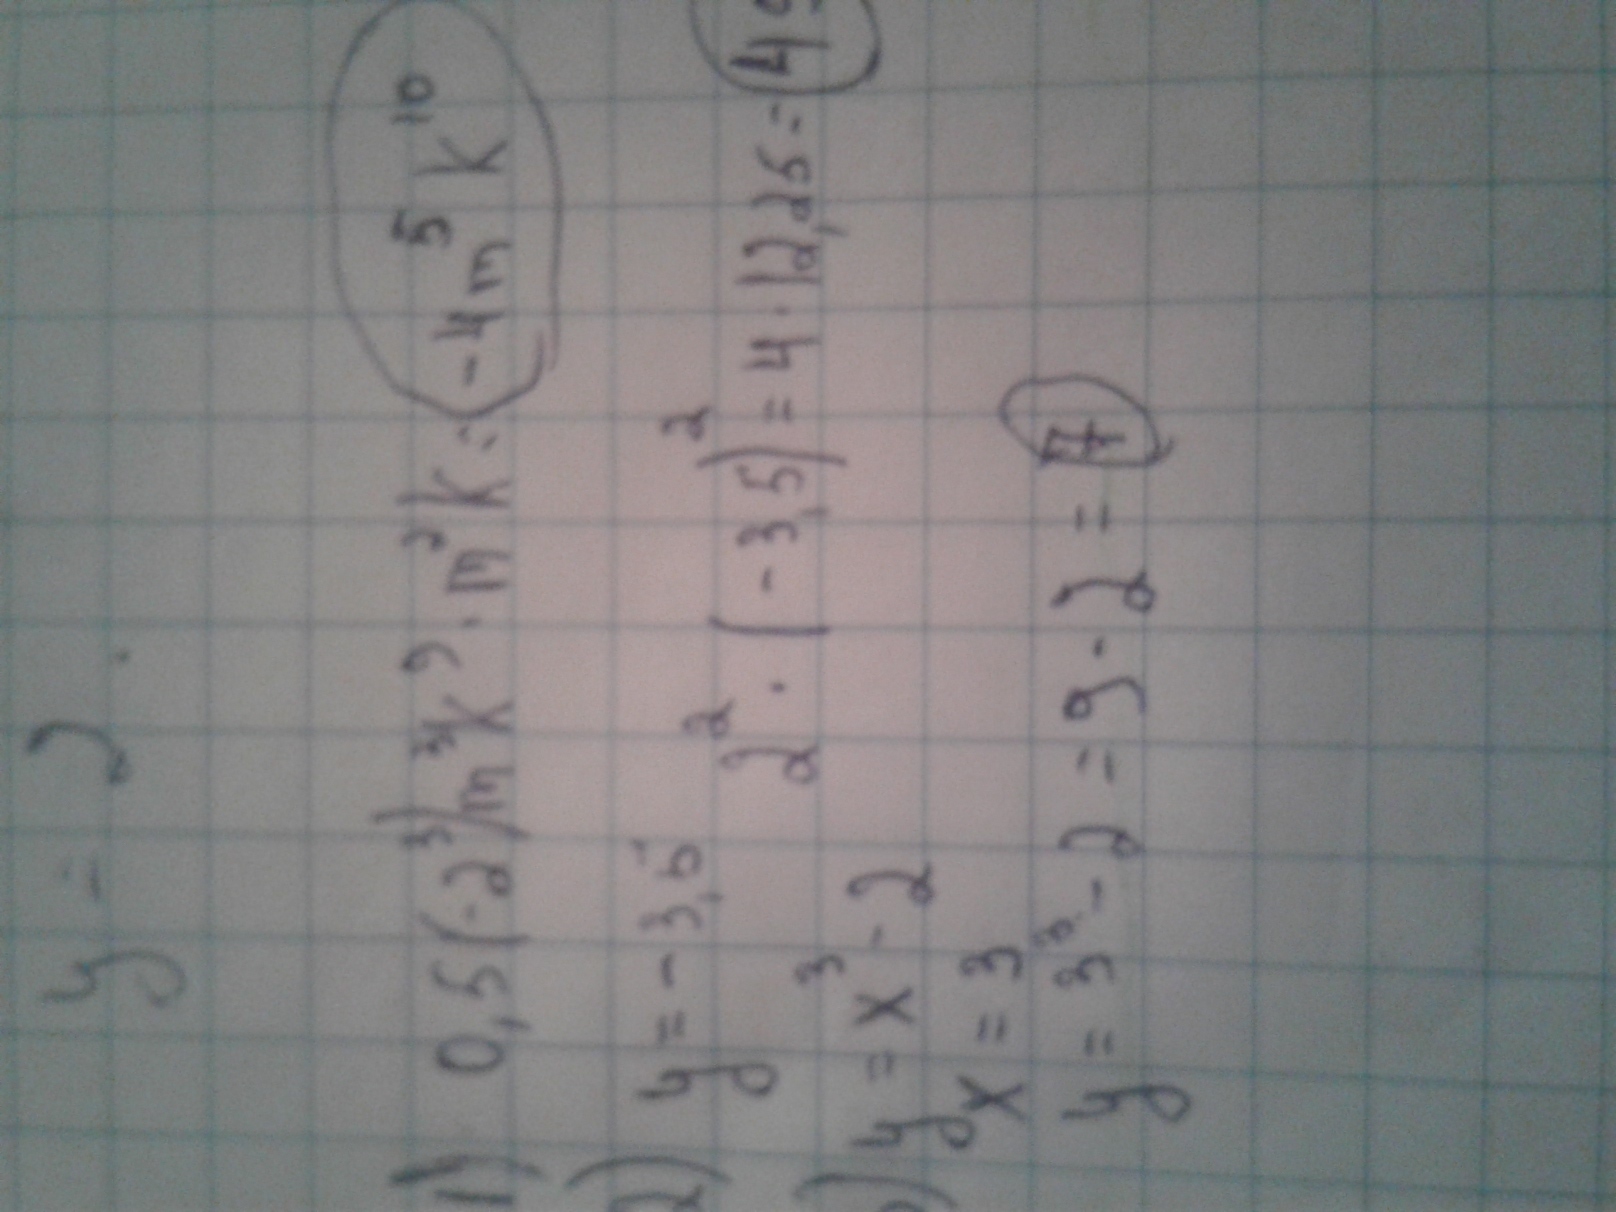 y = 2.
1) 0,5(-2³)m³k⁹·m²k = -4m⁵k¹⁰
2) y = -3,5 2²·(-3,5)² = 4·12,25 = 49
3) y = x³ - 2
x = 3
y = 3³ - 2 = 9 - 2 = 7